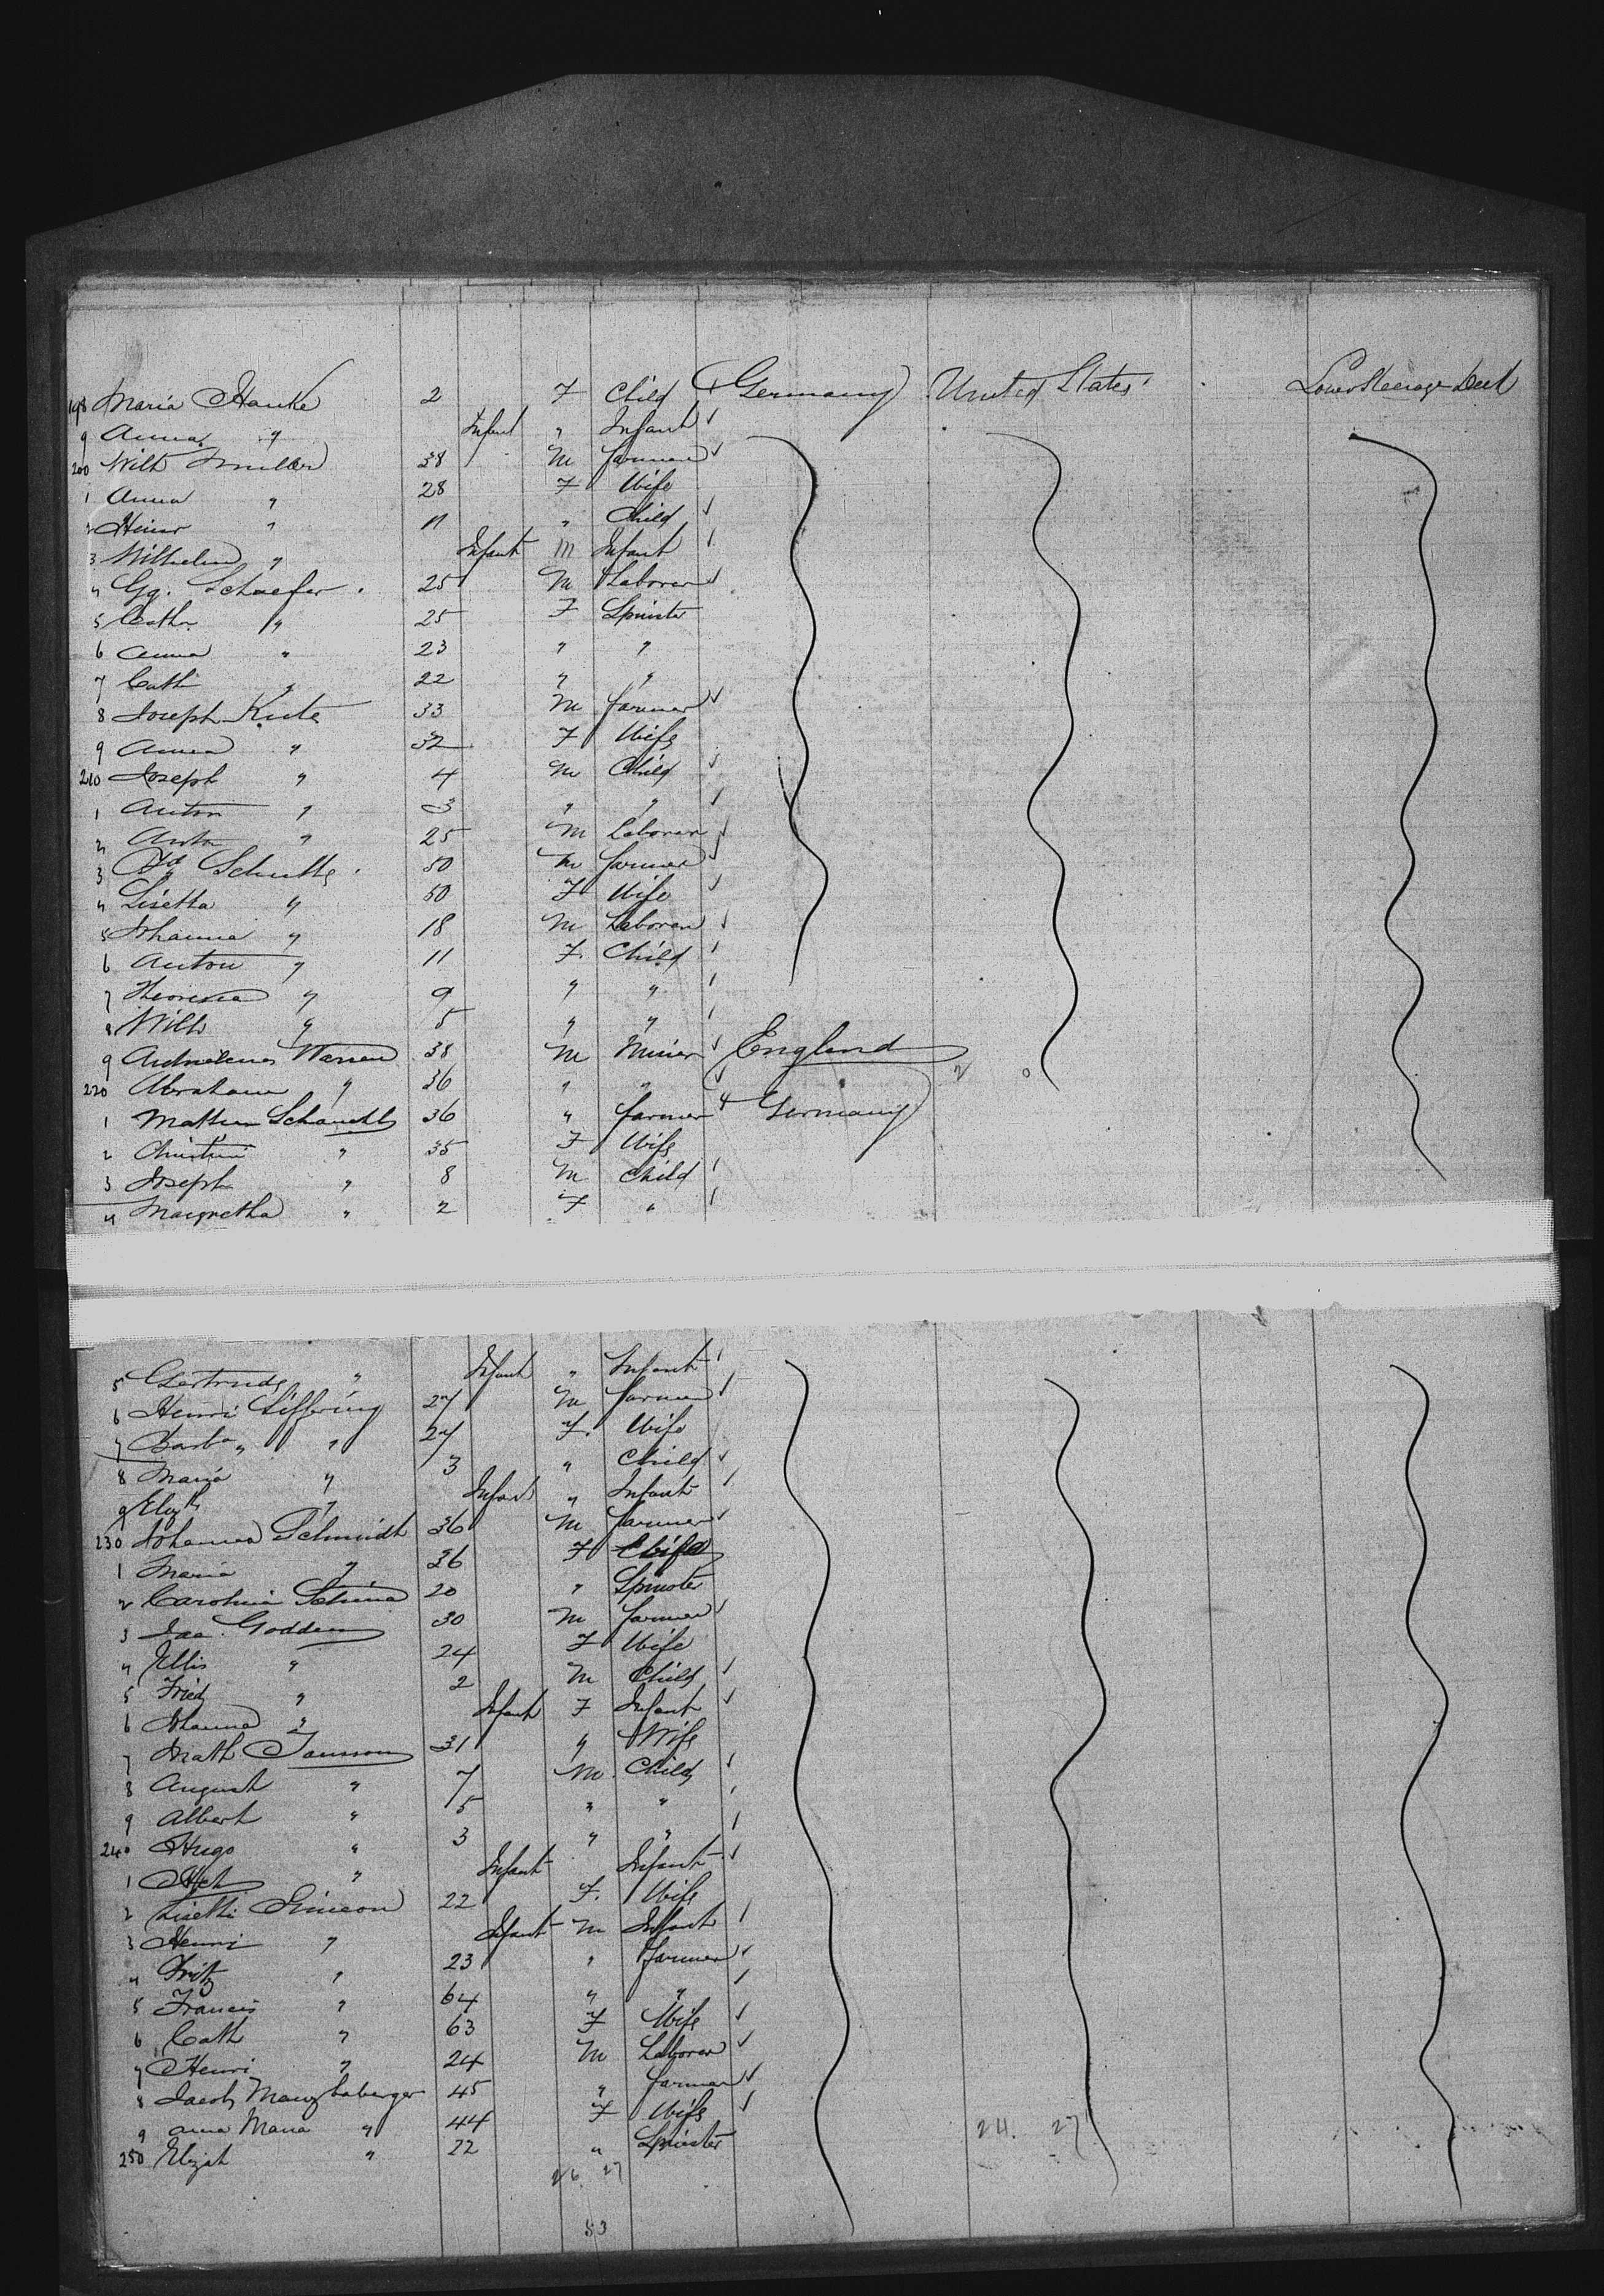 198 Maria Hanke 2 F Child Germany United States Lower Steerage Deck
9 Anna " Infant " Infant
200 Wilh Muller 38 M farmer
1 Anna " 28 F Wife
2 " 11 " Child
3 Wilhelm " Infant M Infant
4 Gg. Schaefer 25 M Laborer
5 Cath. " 25 F Spinster
6 Anna " 23 " "
7 Cath " 22 " "
8 Joseph 33 M farmer
9 Anna " 32 F Wife
210 Joseph " 4 M Child
1 Anton " 3 " "
2 Anton " 25 M Laborer
3 Fd Schutte 50 M farmer
4 Lisetta " 50 F Wife
5 Johanna " 18 M Laborer
6 Anton " 11 F. Child
7 " 9 " "
8 Wilh " 5 " "
9 Warren 38 M Miner England
220 Abraham " 36 " "
1 36 " farmer Germany
2 Christini " 35 F Wife
3 Joseph " 8 M Child
4 Margretha " 2 F "
5 Gertrude " Infant " Infant
6 Henri Siffering 27 M farmer
7 Barba " " 27 F. Wife
8 Maria " 3 " Child
9 Elizth " Infant " Infant
230 Johanna Schmidt 36 M farmer
1 Maria " 26 F Wife
2 Carolina 20 " Spinster
3 Jac. Godden 30 M farmer
4 Ellis " 24 F Wife
5 Fried " 2 M Child
6 Johanna " Infant F Infant
7 Math 31 " Wife
8 August " 7 M. Child
9 Albert " 5 " "
240 Hugo " 3 " "
1 " Infant Infant
2 Lisetti Simeon 22 F. Wife
3 Henri " Infant M Infant
4 Fritz " 23 " farmer
5 Francis " 64 " "
6 Cath " 63 F Wife
7 Henri " 24 M Laborer
8 Jacob 45 " farmer
9 Anna Maria " 44 F Wife
250 Elizah " 22 " Spinster
26 27 24. 27
53